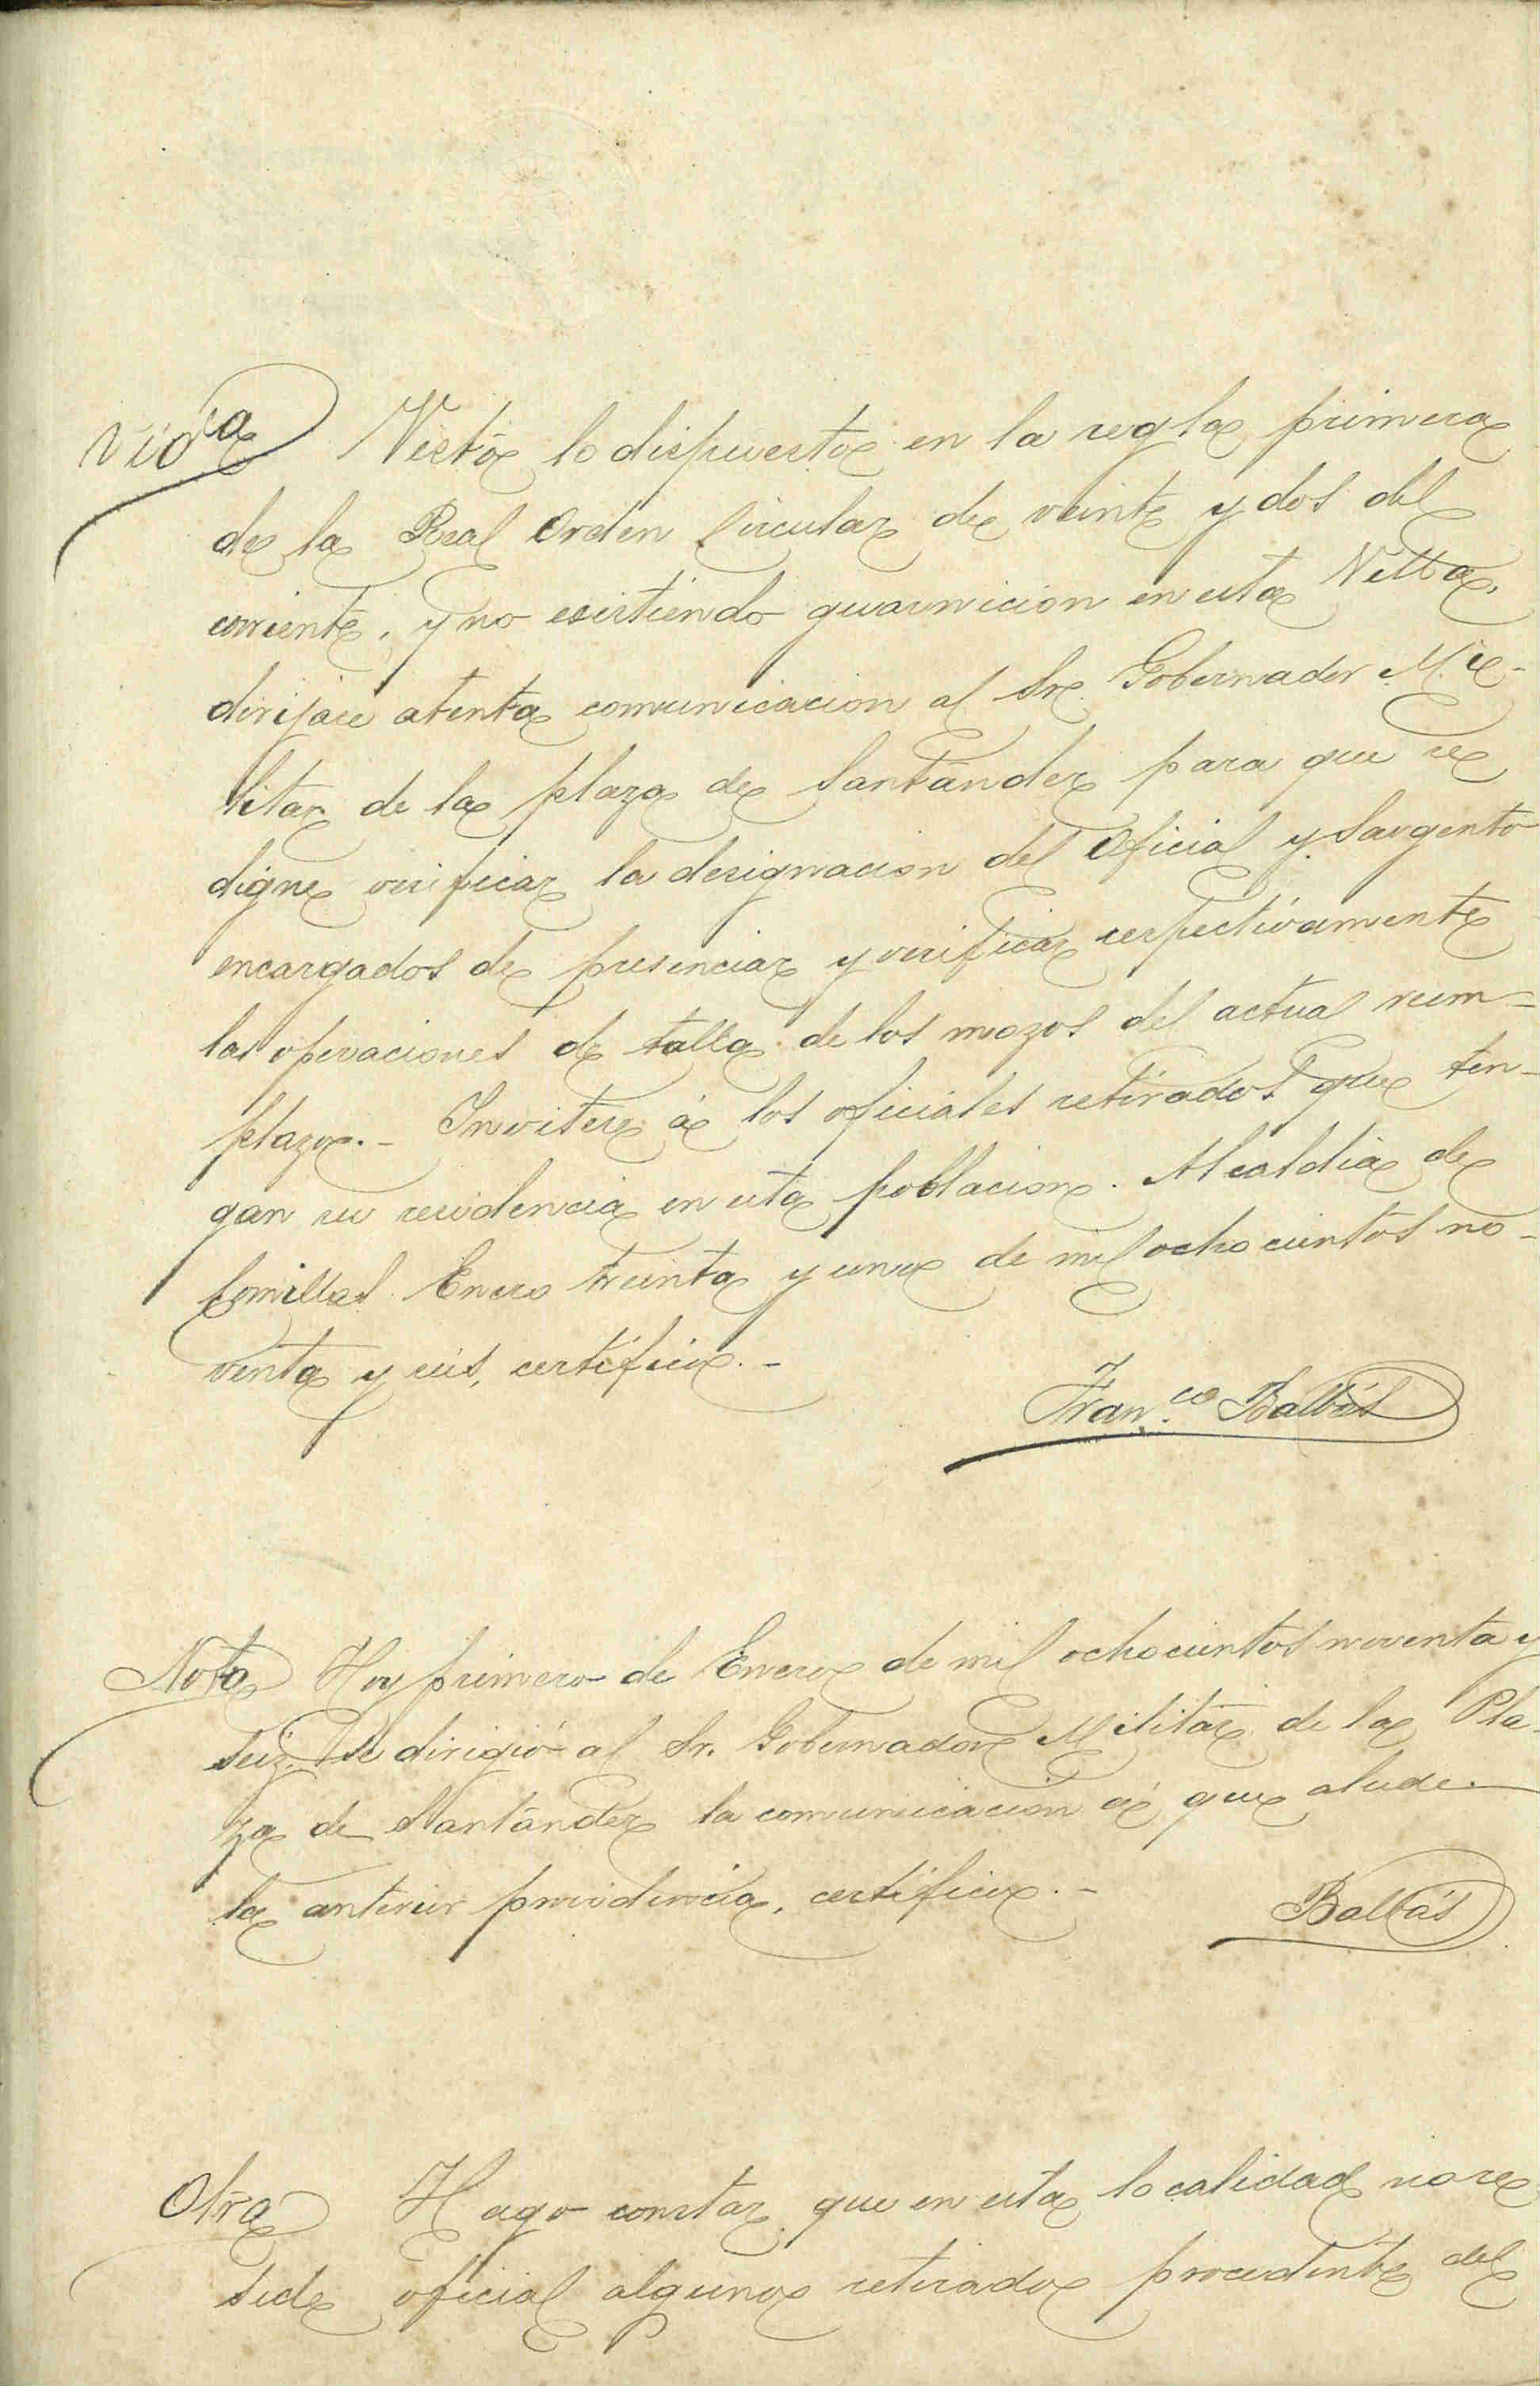 Vid.ª Vistó lo dispuesto en la regla primera
de la Real Orden Circular de veinte y dos del
corriente, y no esistiendo guarnicion en esta Villa,
dirijase atenta comunicacion al Sr. Gobernador Mi-
litar de la plaza de Santánder para que se
digne verificar la designacion del Oficial y Sargento
encargados de presenciar y verificar respectivamente
las operaciones de talla de los mozos del actual reem-
plazo.- Invitese á los oficiales retirados que ten-
gan su residencia en esta poblacion. Alcaldia de
Comillas Enero treinta y uno de mil ochocientos no-
venta y seis, certifico.-
Fran.co Balbás
Nota Hoy primero de Enero de mil ochocientos noventa y
seiz se dirigió al Sr. Gobernador Militár de la Pla-
za de Santánder la comunicacion á que alude
la anterior providencia, certifico.-
Balbás
Otra Hago constar que en esta localidad no re
side oficial alguno retirado procedente del